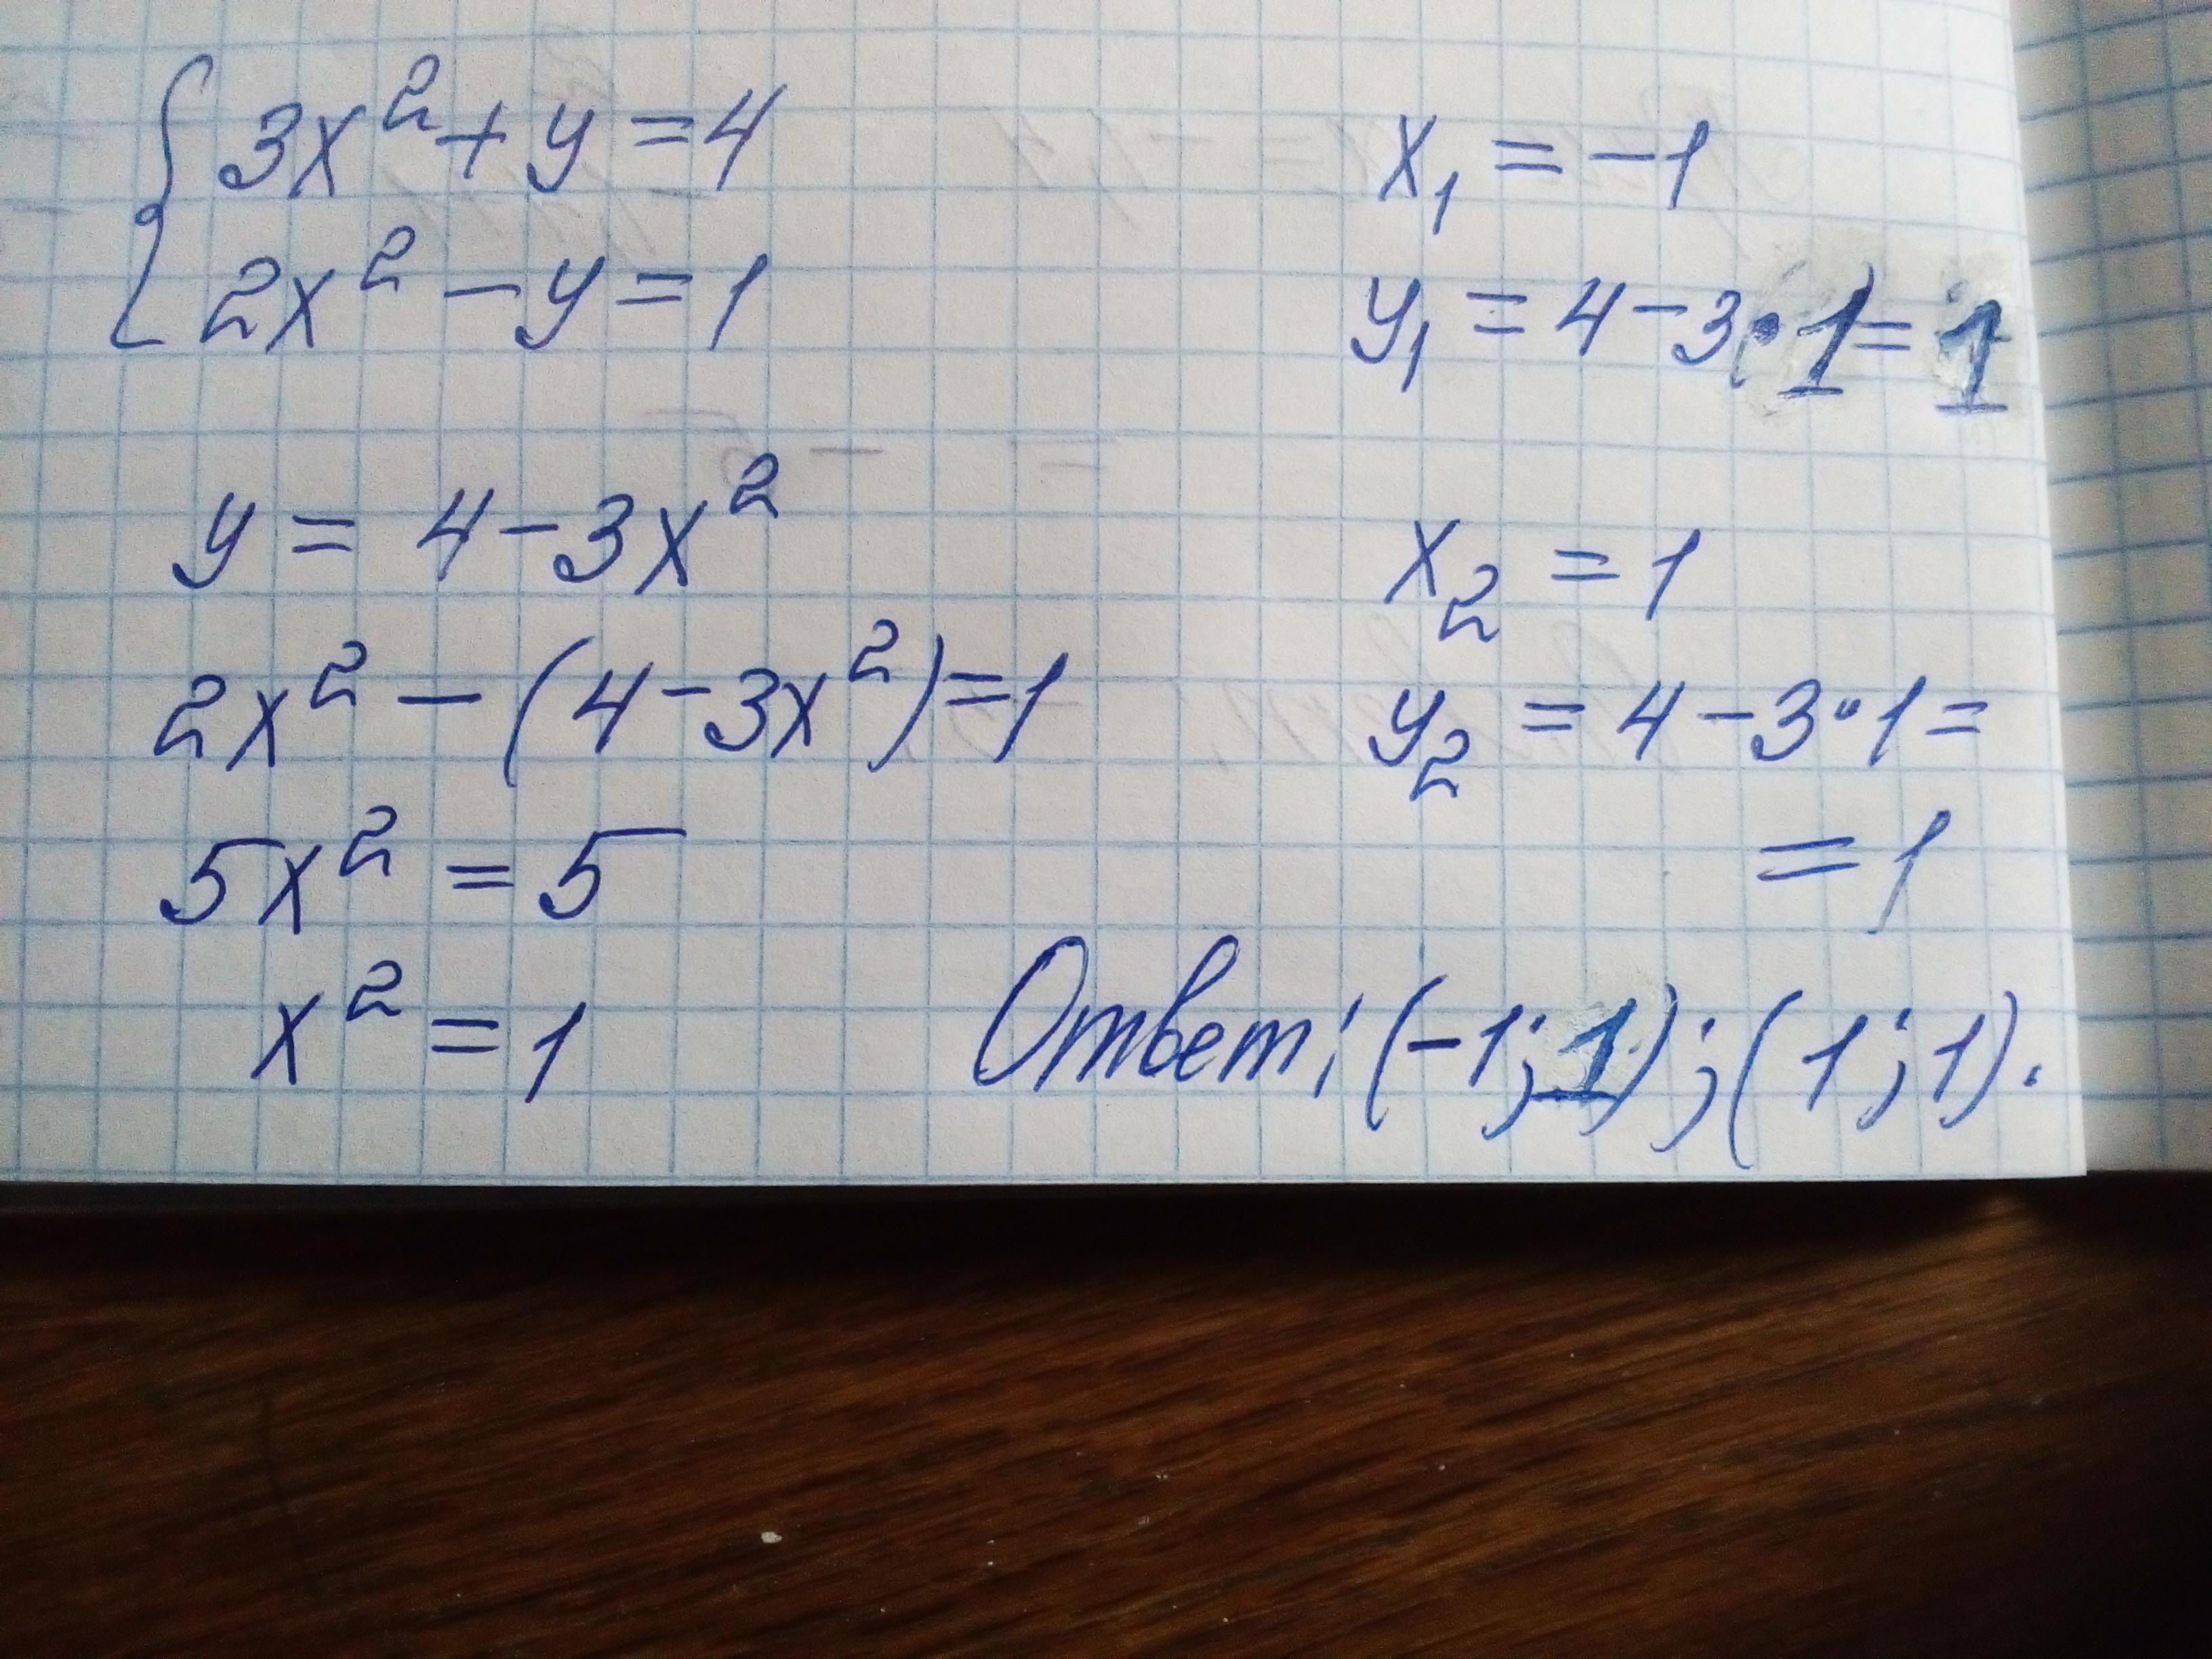 3x² + y = 4
2x² - y = 1
y = 4 - 3x²
2x² - (4 - 3x²) = 1
5x² = 5
x² = 1
x₁ = -1
y₁ = 4 - 3 · 1 = 1
x₂ = 1
y₂ = 4 - 3 · 1 =
= 1
Ответ: (-1; 1); (1; 1).